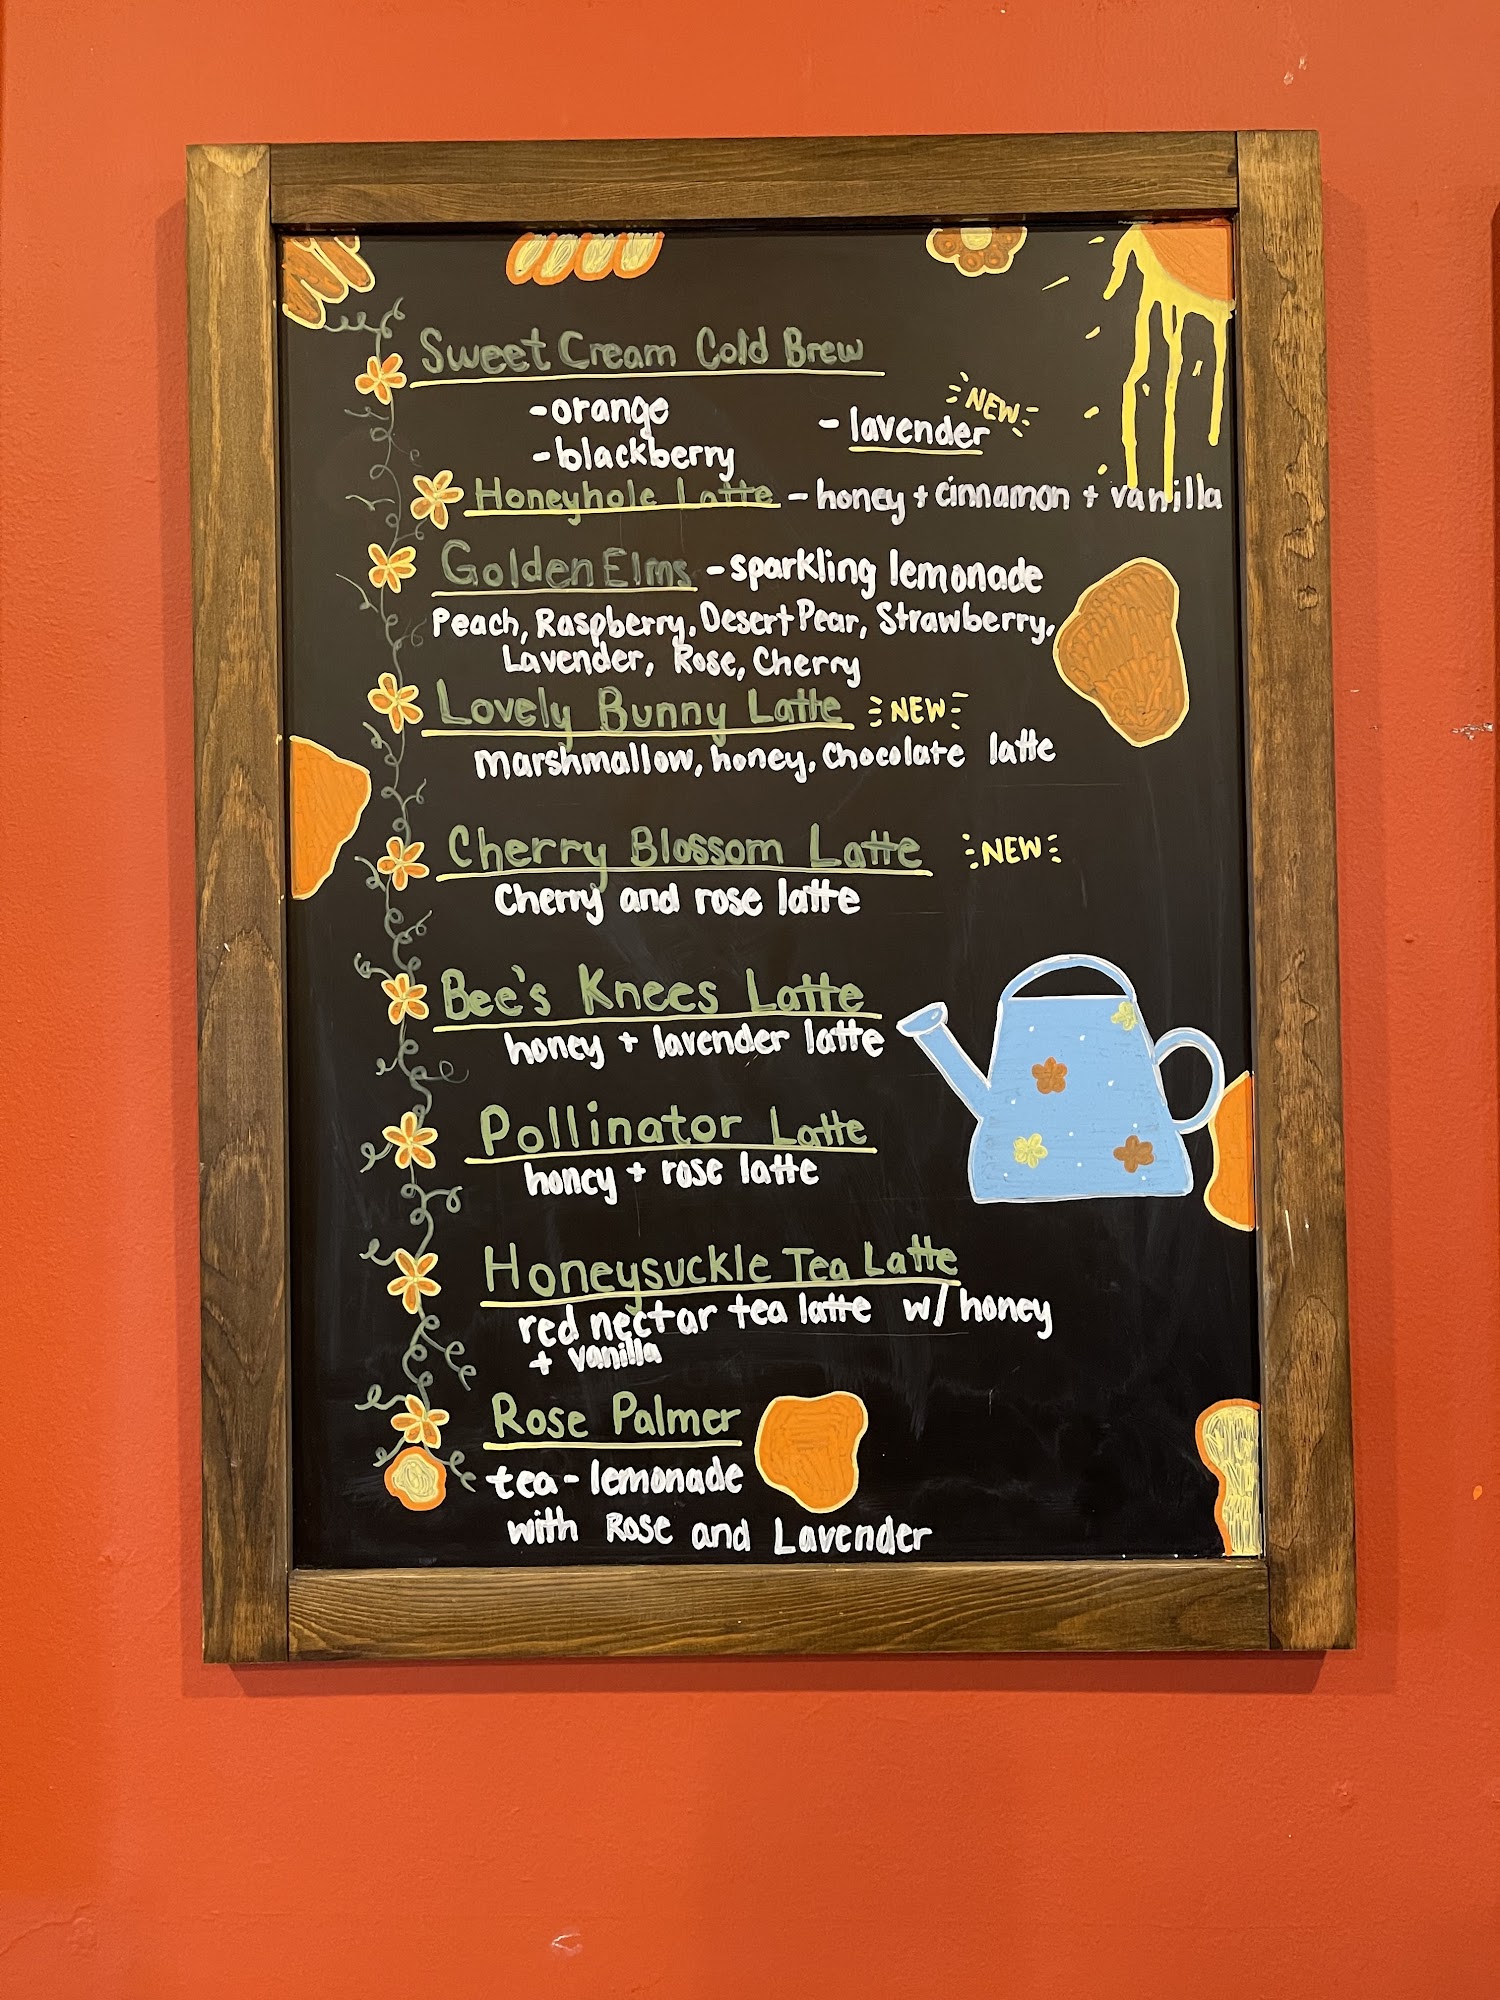 Sweet Cream Cold Brew
-orange
NEW
- lavender
-blackberry
Honeyhole Latte - honey + cinnamon + vanilla
Golden Elms - sparkling lemonade
Peach, Raspberry, Desert Pear, Strawberry,
Lavender, Rose, Cherry
Lovely Bunny Latte NEW
marshmallow, honey, chocolate latte
Cherry Blossom Latte NEW
Cherry and rose latte
Bee's Knees Latte
honey + lavender latte
Pollinator Latte
honey + rose latte
Honeysuckle Tea Latte
red nectar tea latte w/ honey
+ vanilla
Rose Palmer
tea - lemonade
with Rose and Lavender